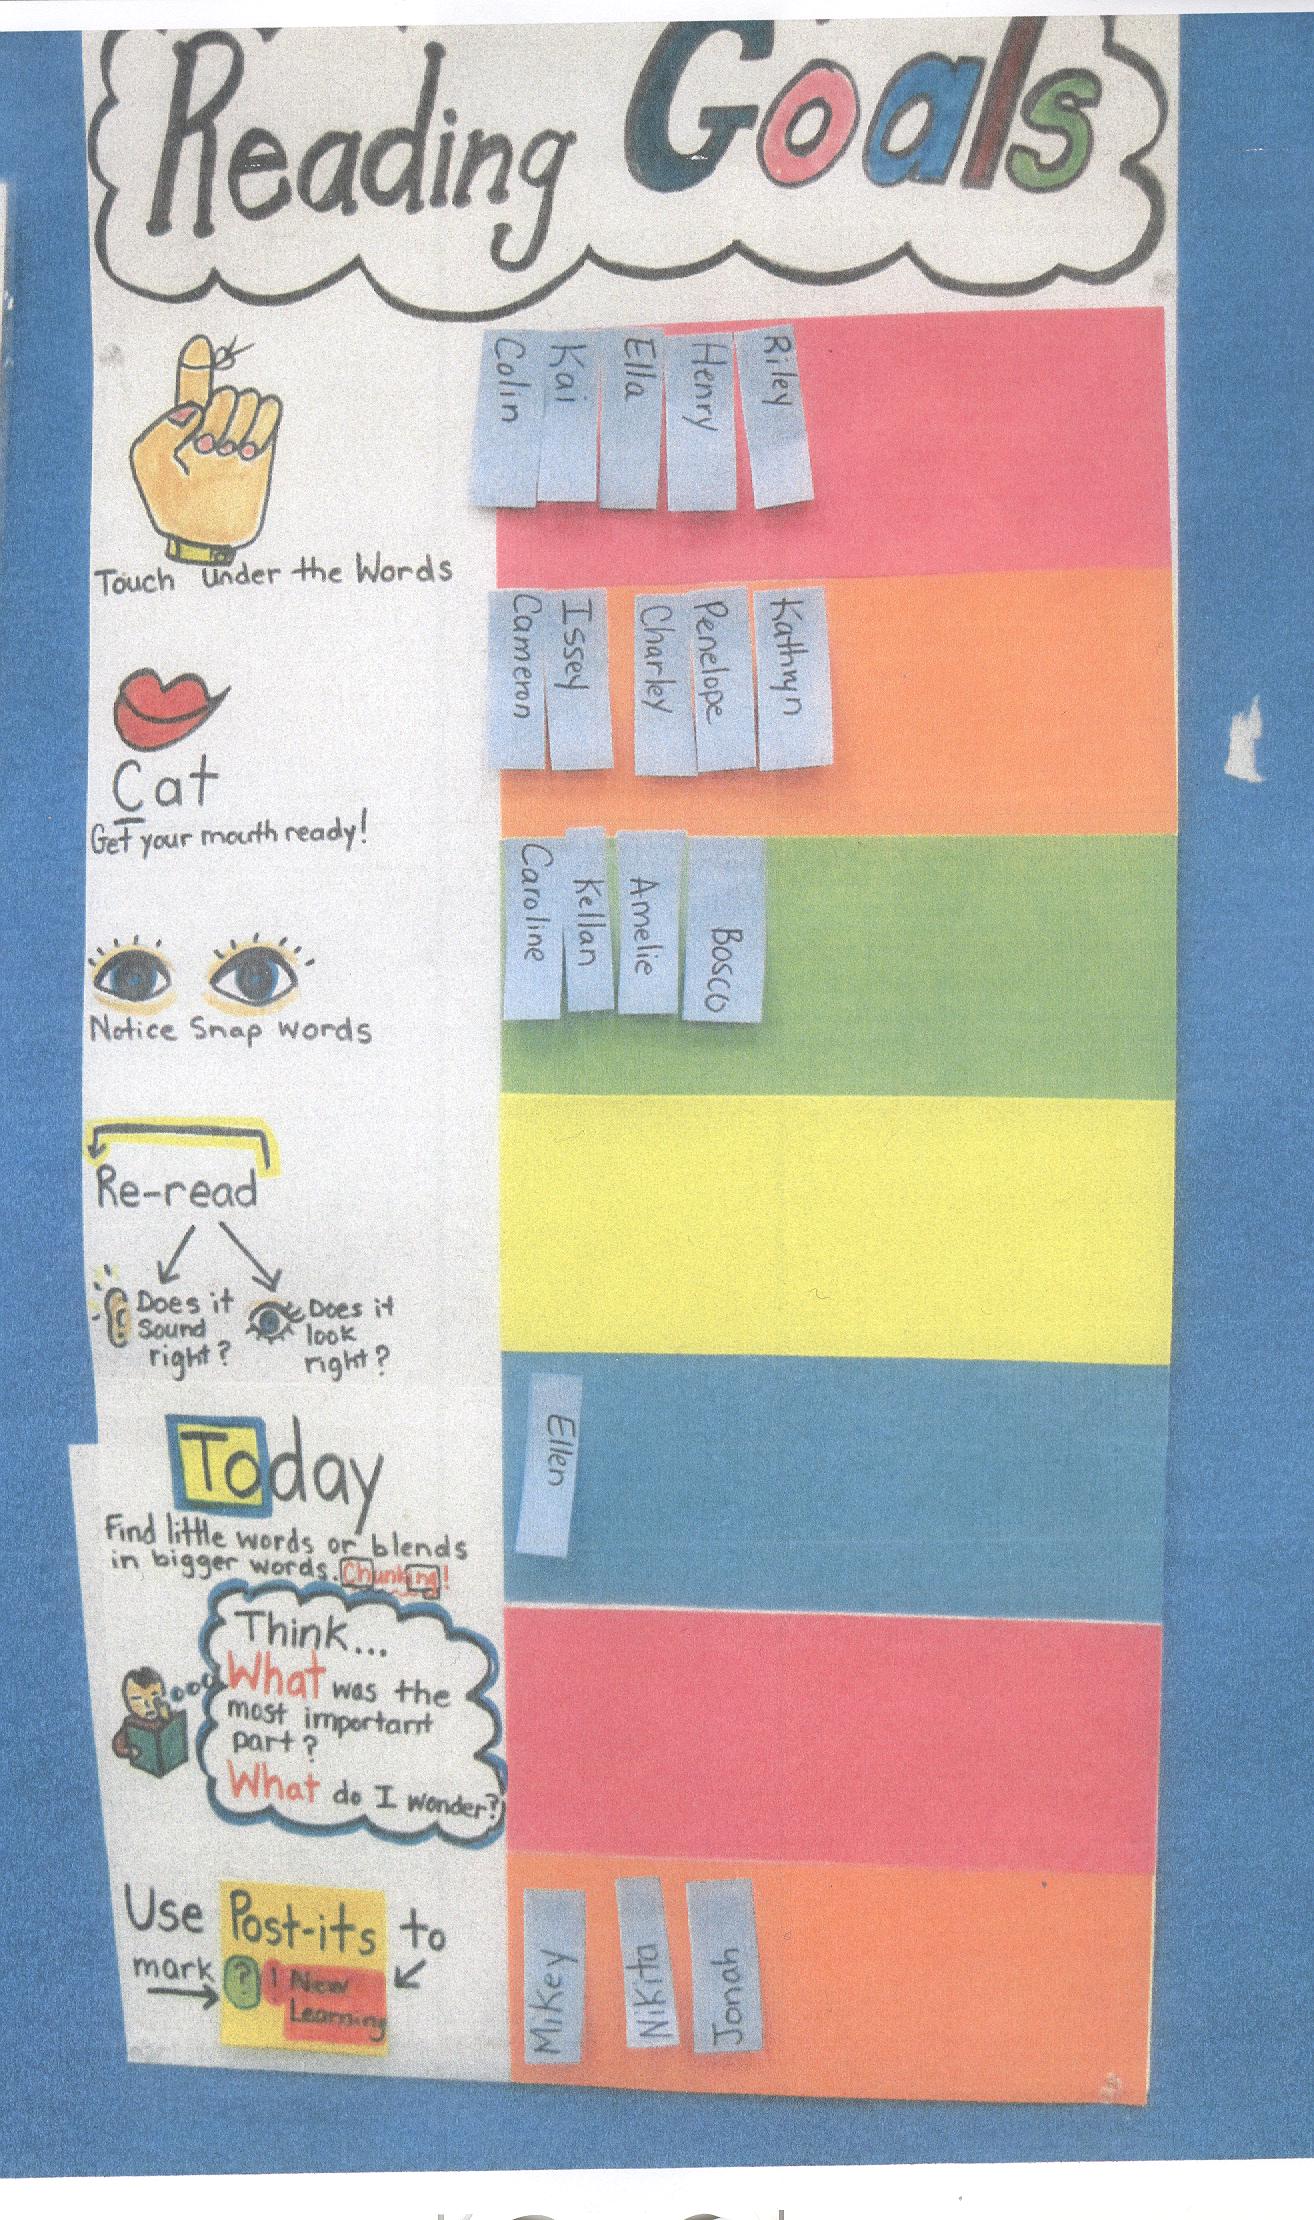 Reading Goals
Colin
Kai
Ella
Henry
Riley
Touch under the Words
Cameron
Issey
Charley
Penelope
Kathryn
Cat
Get your mouth ready!
Caroline
Kellan
Amelie
Bosco
Notice Snap words
Re-read
Does it
Sound
right?
Does it
look
right?
Ellen
Today
Find little words or blends
in bigger words. Chunking!
Think...
What was the
most important
part?
What do I wonder?
Mikey
Nikita
Jonah
Use Post-its to
mark ? ! New
Learning